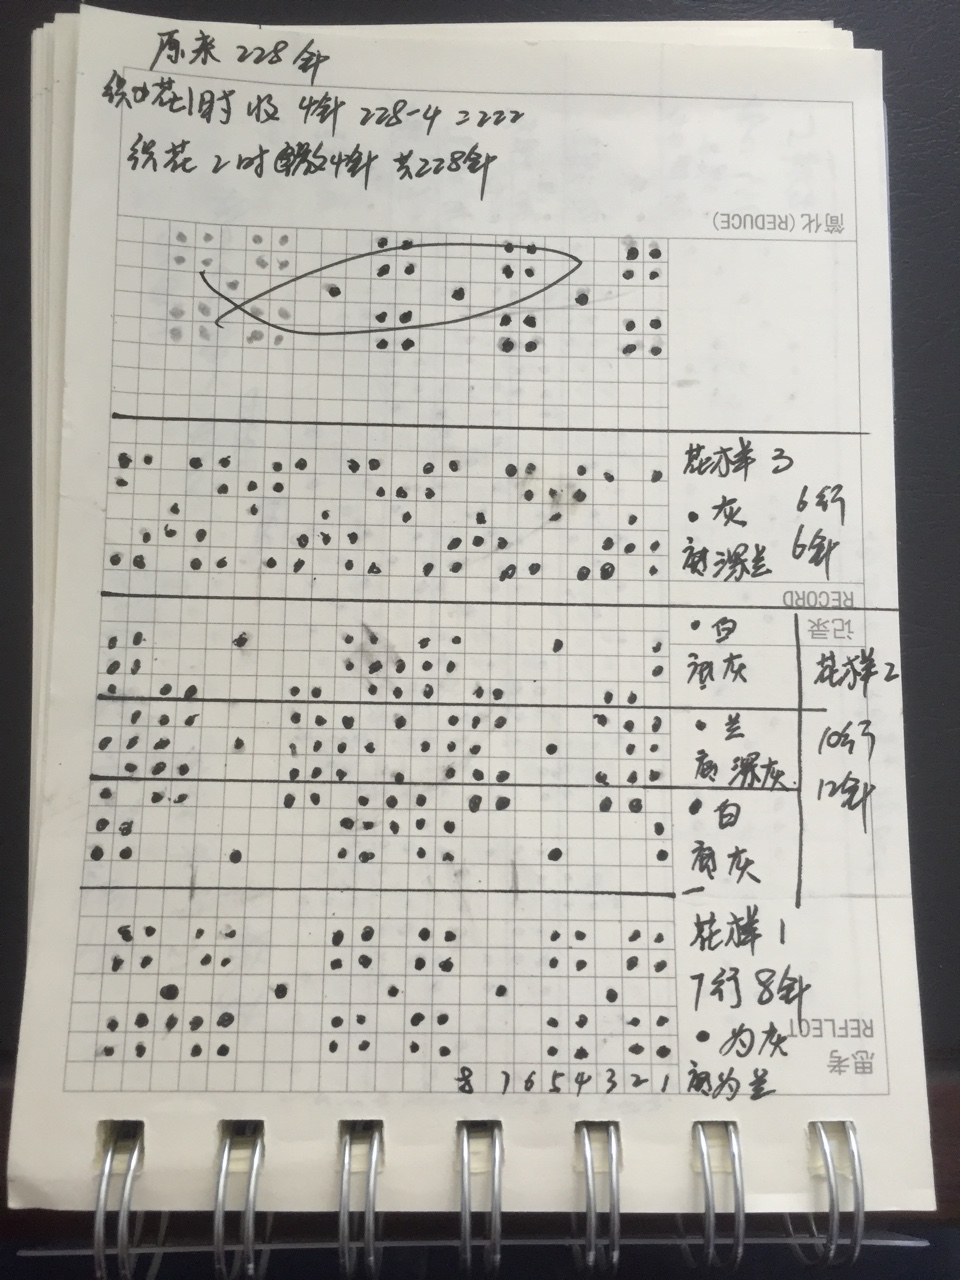 原来 228针
织花1时 收 4针 228-4=222
织花2时 放4针 共228针
简化 (REDUCE)
花样3
• 灰 6行
底深兰 6针
RECORD
记录
• 白
底灰
花样2
• 兰
底深灰.
10行
12针
• 白
底灰
花样1
7行8针
REFLECT
思考
• 为灰
底为兰
8 7 6 5 4 3 2 1